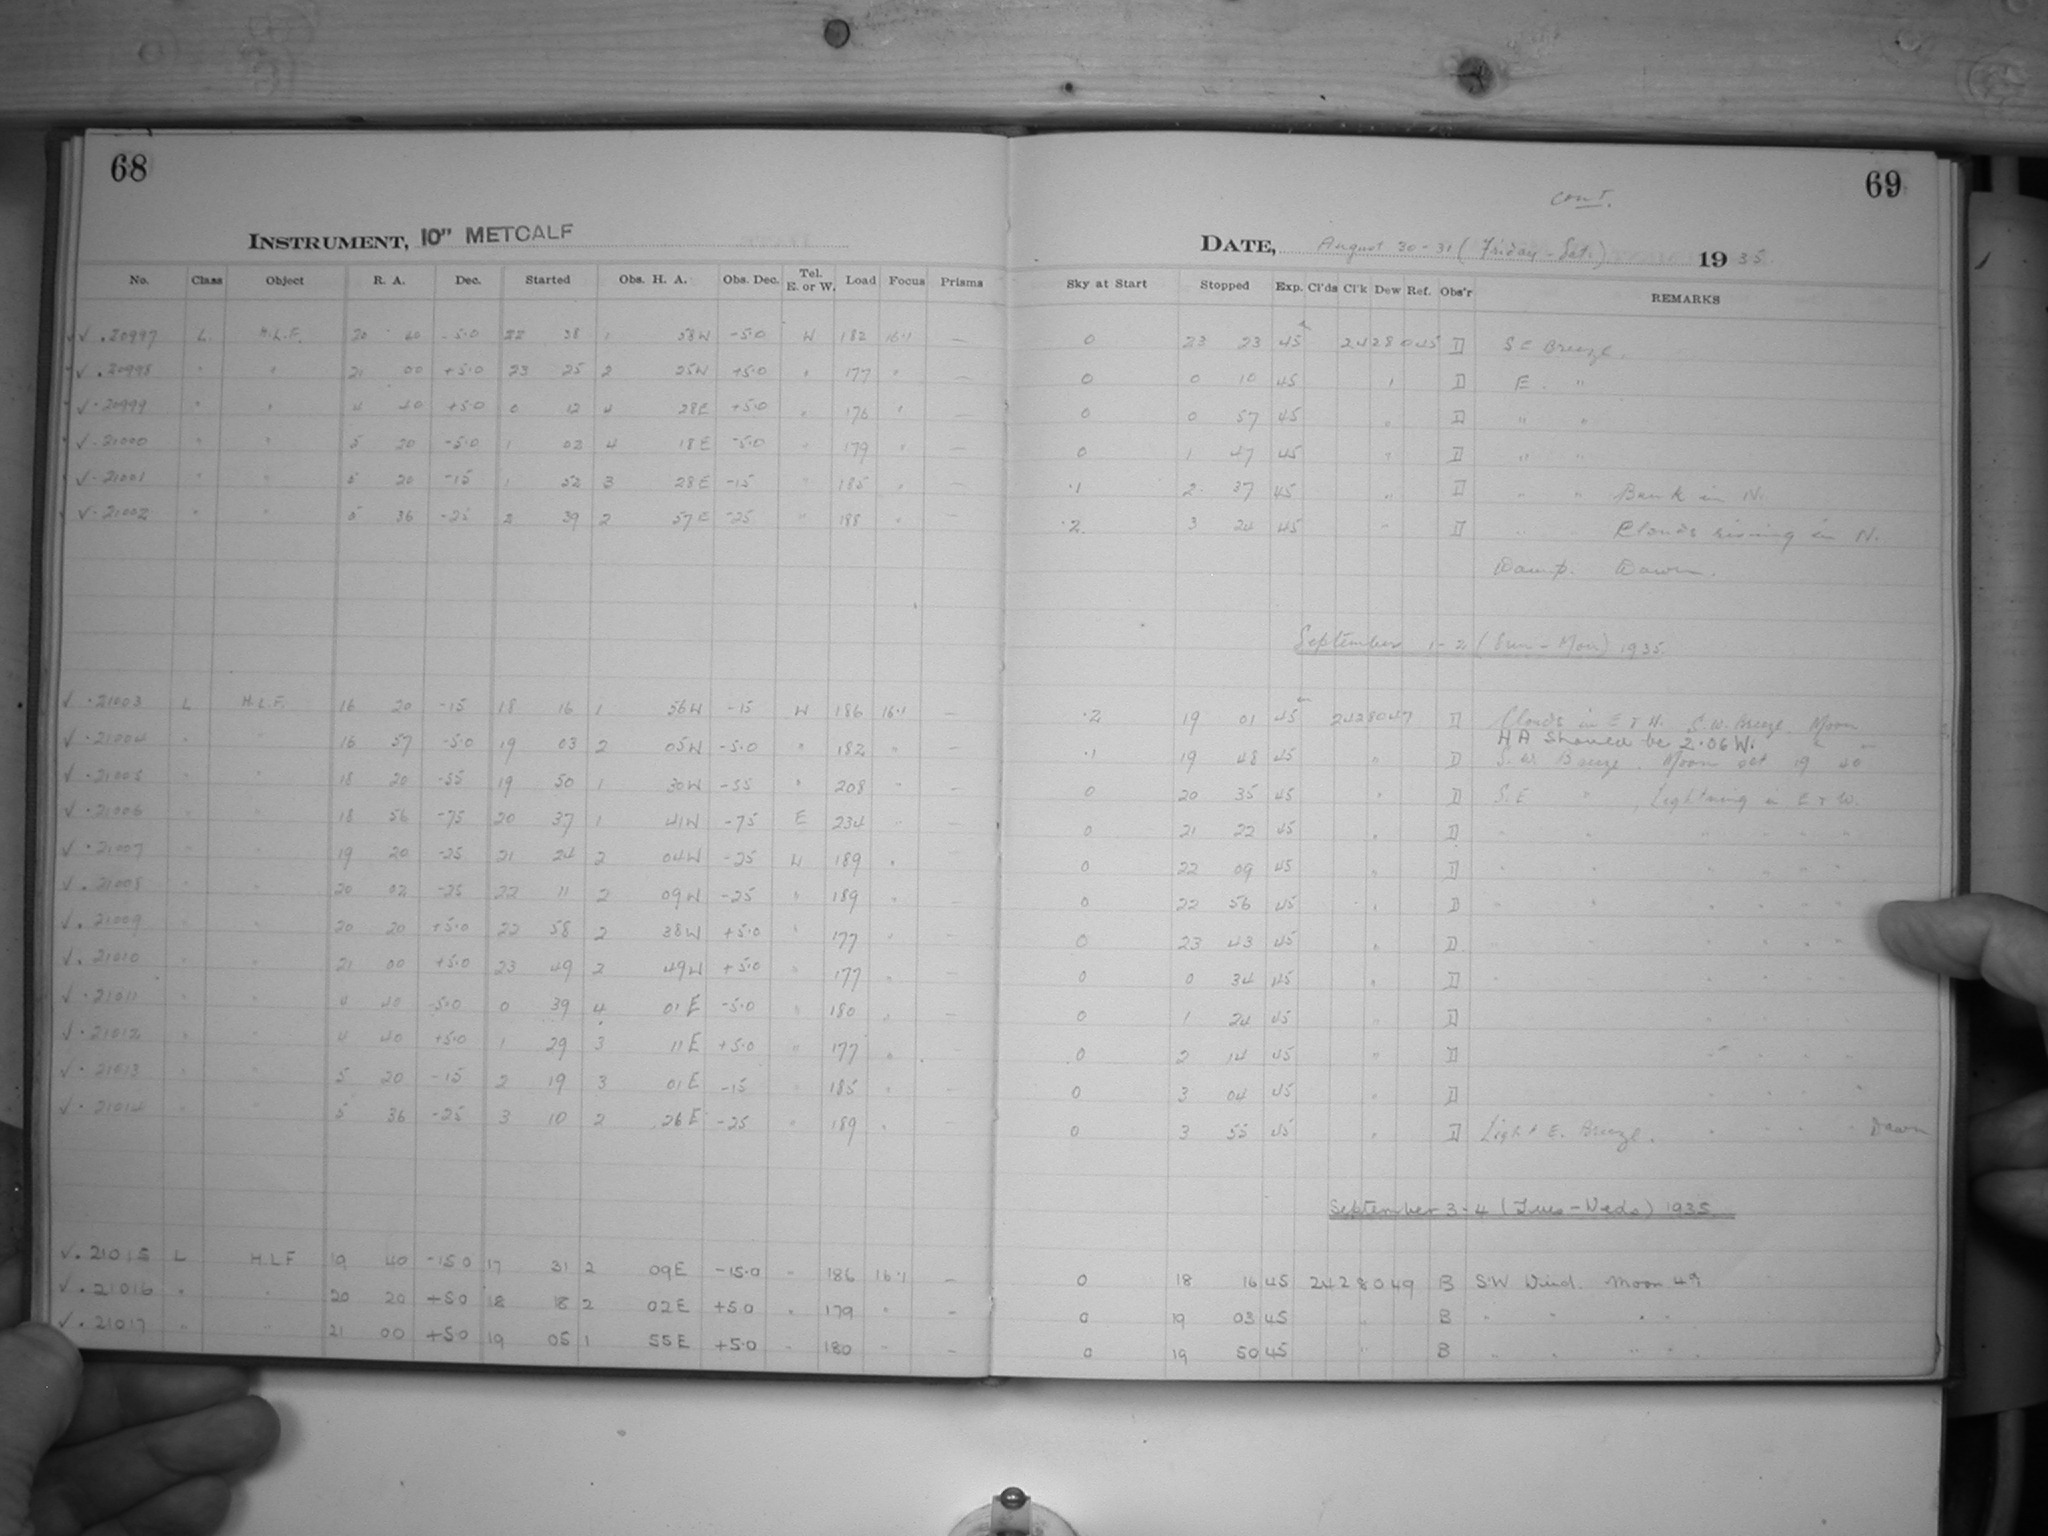 68
INSTRUMENT, 10" METCALF
No. Class Object R. A. Dec. Started Obs. H. A. Obs. Dec. Tel. E. or W. Load Focus Prisms
√ . 20997 L. H.L.F. 20 40 -5.0 22 38 1 53W -5.0 W 182 16.1 —
√ . 20998 " " 21 00 +5.0 23 25 2 25W +5.0 " 177 " —
√ . 20999 " " 4 40 +5.0 0 12 4 28E +5.0 " 176 " —
√ . 21000 " " 5 20 -5.0 1 02 4 18E -5.0 " 179 " —
√ . 21001 " " 5 20 -15 1 52 3 28E -15 " 185 " —
√ . 21002 " " 5 36 -25 2 39 2 57E -25 " 188 " —
√ . 21003 L H.L.F. 16 20 -15 18 16 1 56W -15 W 186 16.1 —
√ . 21004 " " 16 57 -5.0 19 03 2 05W -5.0 " 182 " —
√ . 21005 " " 18 20 -55 19 50 1 30W -55 " 208 " —
√ . 21006 " " 18 56 -75 20 37 1 41W -75 E 234 " —
√ . 21007 " " 19 20 -25 21 24 2 04W -25 W 189 " —
√ . 21008 " " 20 02 -25 22 11 2 09W -25 " 189 " —
√ . 21009 " " 20 20 +5.0 22 58 2 38W +5.0 " 177 " —
√ . 21010 " " 21 00 +5.0 23 49 2 49W +5.0 " 177 " —
√ . 21011 " " 4 40 -5.0 0 39 4 01E -5.0 " 180 " —
√ . 21012 " " 4 40 +5.0 1 29 3 11E +5.0 " 177 " —
√ . 21013 " " 5 20 -15 2 19 3 01E -15 " 185 " —
√ . 21014 " " 5 36 -25 3 10 2 26E -25 " 189 " —
√ . 21015 L H.L.F 19 40 -15.0 17 31 2 09E -15.0 " 186 16.1 —
√ . 21016 " " 20 20 +5.0 18 18 2 02E +5.0 " 179 " —
√ . 21017 " " 21 00 +5.0 19 05 1 55E +5.0 " 180 " —
69
cont.
DATE, August 30-31 (Friday-Sat.) 1935.
Sky at Start Stopped Exp. Cl'ds Cl'k Dew Ref. Obs'r REMARKS
0 23 23 45 2428045 D S E Breeze.
0 0 10 45 " D E. "
0 0 57 45 " D " "
0 1 47 45 " D " "
.1 2 37 45 " D " " Bank in N.
.2 3 24 45 " D " " Clouds rising in N.
Damp. Dawn.
September 1-2 (Sun-Mon) 1935.
.2 19 01 45 2428047 D Clouds in E & N. S.W. Breeze. Moon
HA should be 2.06W.
.1 19 48 45 " D S.W. Breeze. Moon set 19 40
0 20 35 45 " D S.E " , Lightning in E & W.
0 21 22 45 " D " " " " " "
0 22 09 45 " D " " " " " "
0 22 56 45 " D " " " " " "
0 23 43 45 " D " " " " " "
0 0 34 45 " D " " " " " "
0 1 24 45 " D
0 2 14 45 " D " " " "
0 3 04 45 " D
0 3 55 45 " D Light E. Breeze. " " " " Dawn
September 3-4 (Tues-Weds) 1935.
0 18 16 45 2428049 B S.W Wind. Moon 49
0 19 03 45 " B " " " "
0 19 50 45 " B " " " "